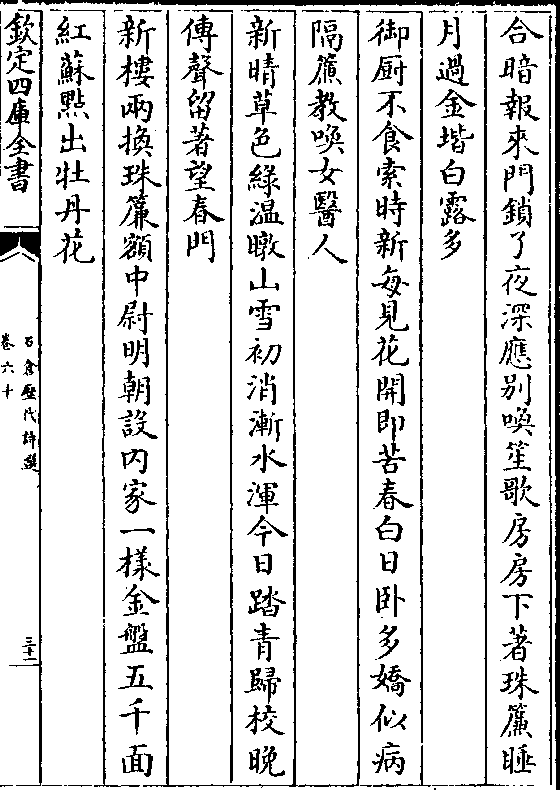 合暗報來門鎖了夜深應别喚笙歌房房下著珠簾睡
月過金堦白露多
御厨不食索時新每見花開即苦春白日卧多嬌似病
隔簾教喚女醫人
新晴草色綠溫暾山雪初消漸水渾今日踏青歸校晚
傳聲留著望春門
新樓兩換珠簾額中尉明朝設内家一様金盤五千面
紅蘇㸃出牡丹花
欽定四庫全書
石倉歷代詩選
卷六十
三十二